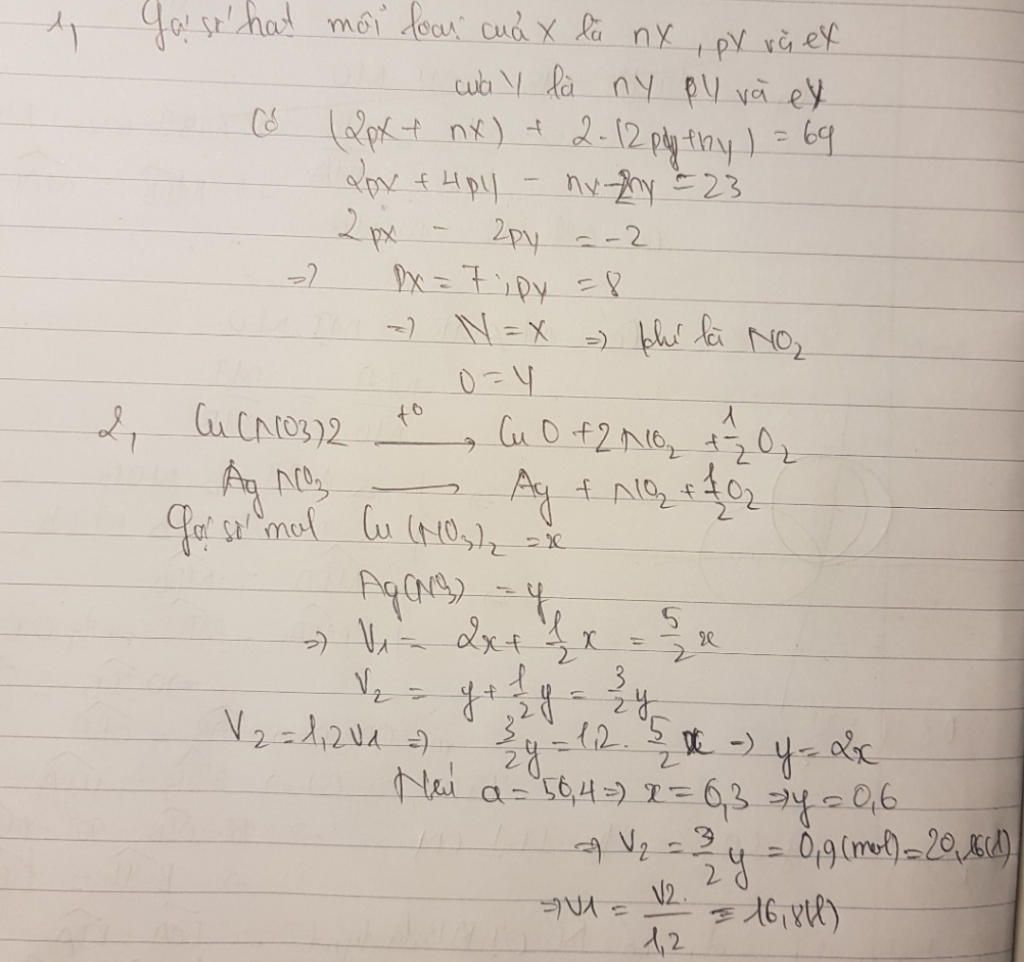 1, Gọi số hạt mỗi loại của X là nX, pX và eX
của Y là nY pY và eY
Có (2px + nx) + 2.(2py+ny) = 69
2px + 4py - nx-2ny = 23
2px - 2py = -2
=> px = 7; py = 8
=> N = X => khí là NO2
O = Y
2, Cu(NO3)2 t° → CuO + 2NO2 + 1/2 O2
AgNO3 → Ag + NO2 + 1/2 O2
Gọi số mol Cu(NO3)2 = x
Ag(NO3) = y
=> V1 = 2x + 1/2 x = 5/2 x
V2 = y + 1/2 y = 3/2 y
V2 = 1,2V1 => 3/2 y = 1,2. 5/2 x -> y = 2x
Nếu a = 56,4 => x = 0,3 => y = 0,6
=> V2 = 3/2 y = 0,9 (mol) = 20,16(l)
=> V1 = V2/1,2 = 16,8(l)